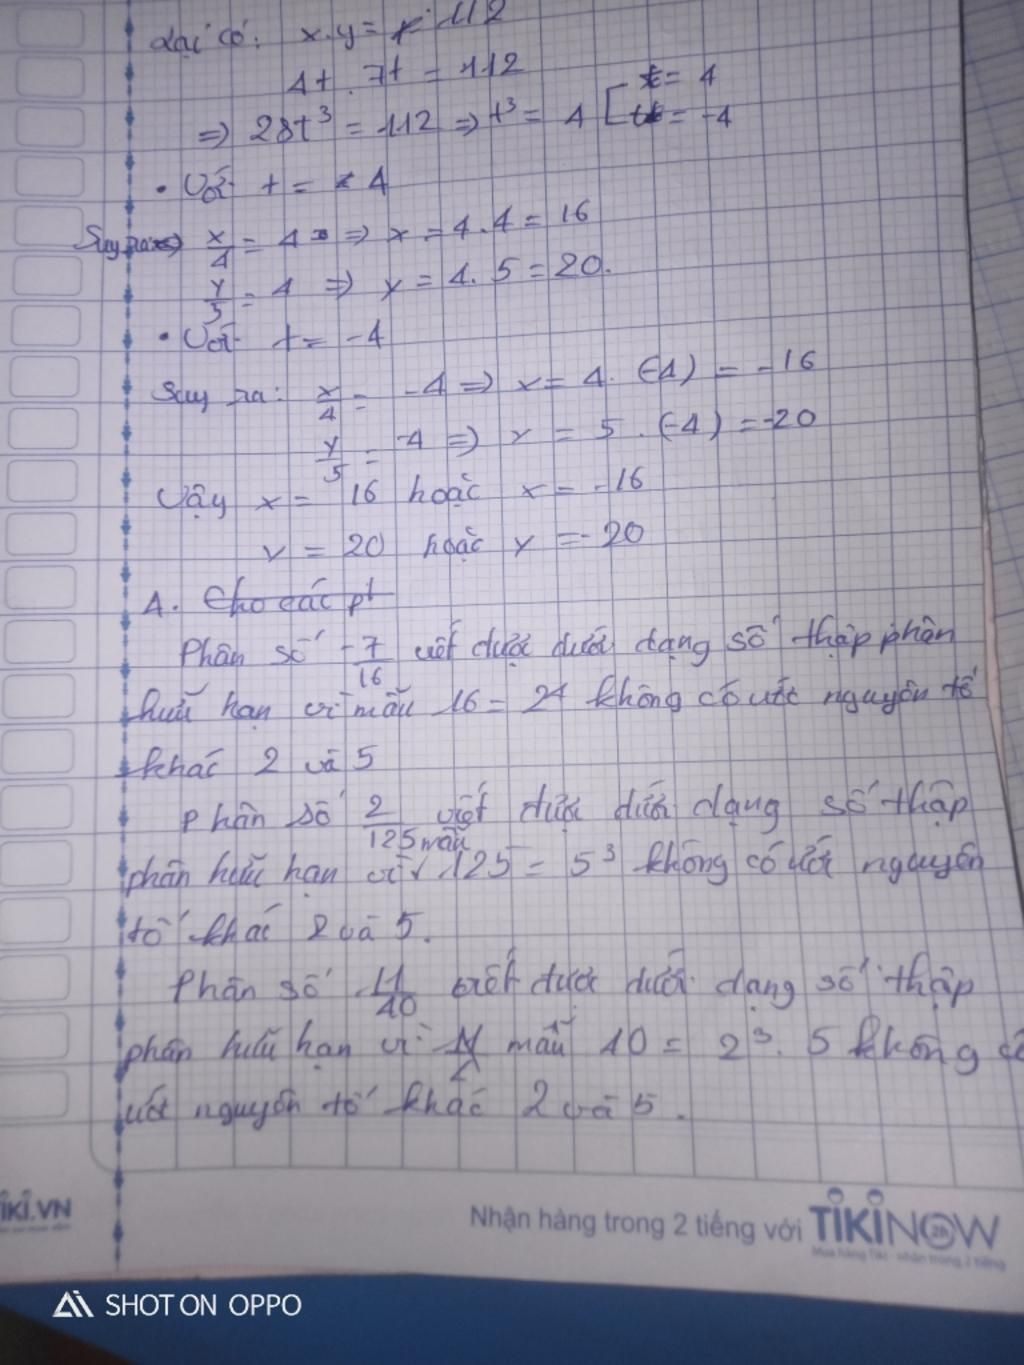 Lại có: x.y = 112
4t . 7t = 112
=> 28t³ = 112 => t³ = 4 [ t = 4
t = -4
• Với t = 4
Suy ra: x/4 = 4 => x = 4.4 = 16
y/5 = 4 => y = 4.5 = 20.
• Với t = -4
Suy ra: x/4 = -4 => x = 4.(-4) = -16
y/5 = -4 => y = 5.(-4) = -20
Vậy x = 16 hoặc x = -16
y = 20 hoặc y = -20
4. Cho các pt
Phân số -7/16 viết được dưới dạng số thập phân
hữu hạn vì mẫu 16 = 2⁴ không có ước nguyên tố
khác 2 và 5
Phân số 2/125 viết được dưới dạng số thập
phân hữu hạn vì mẫu 125 = 5³ không có ước nguyên
tố khác 2 và 5.
Phân số 11/40 viết được dưới dạng số thập
phân hữu hạn vì mẫu 40 = 2³.5 không có
ước nguyên tố khác 2 và 5.
TIKI.VN
Nhận hàng trong 2 tiếng với TIKINOW 2h
Mua hàng Tiki - nhận trong 2 tiếng
SHOT ON OPPO